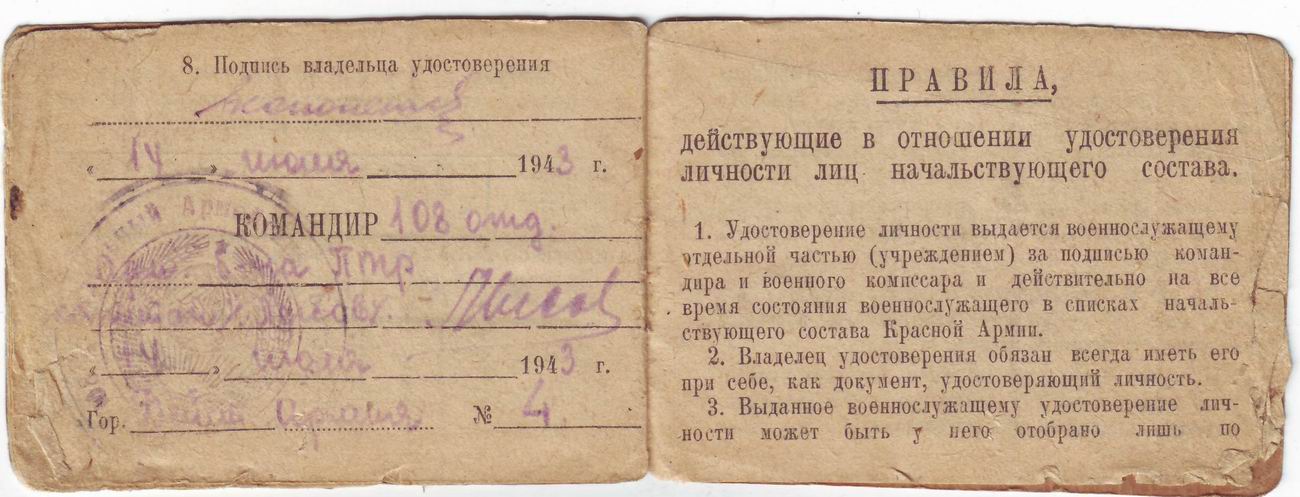 8. Подпись владельца удостоверения
„ 14 „ июля 1943 г.
КОМАНДИР 108 отд.
б-на ПТР
„ 14 „ июля 1943 г.
Гор. Армия № 4.
ПРАВИЛА,
действующие в отношении удостоверения
личности лиц начальствующего состава.
1. Удостоверение личности выдается военнослужащему
отдельной частью (учреждением) за подписью коман-
дира и военного комиссара и действительно на все
время состояния военнослужащего в списках началь-
ствующего состава Красной Армии.
2. Владелец удостоверения обязан всегда иметь его
при себе, как документ, удостоверяющий личность.
3. Выданное военнослужащему удостоверение лич-
ности может быть у него отобрано лишь по